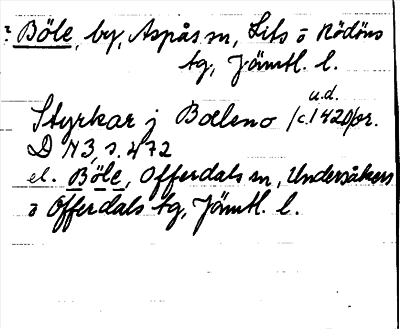 ? Böle, by, Aspås sn, Lits o Rödöns
tg, Jämtl. l.
u.d.
Styrkar j Bøleno /c. 1420/or.
D N3, s. 472
el. Böle, Offerdals sn, Undersåkers
o Offerdals tg, Jämtl. l.